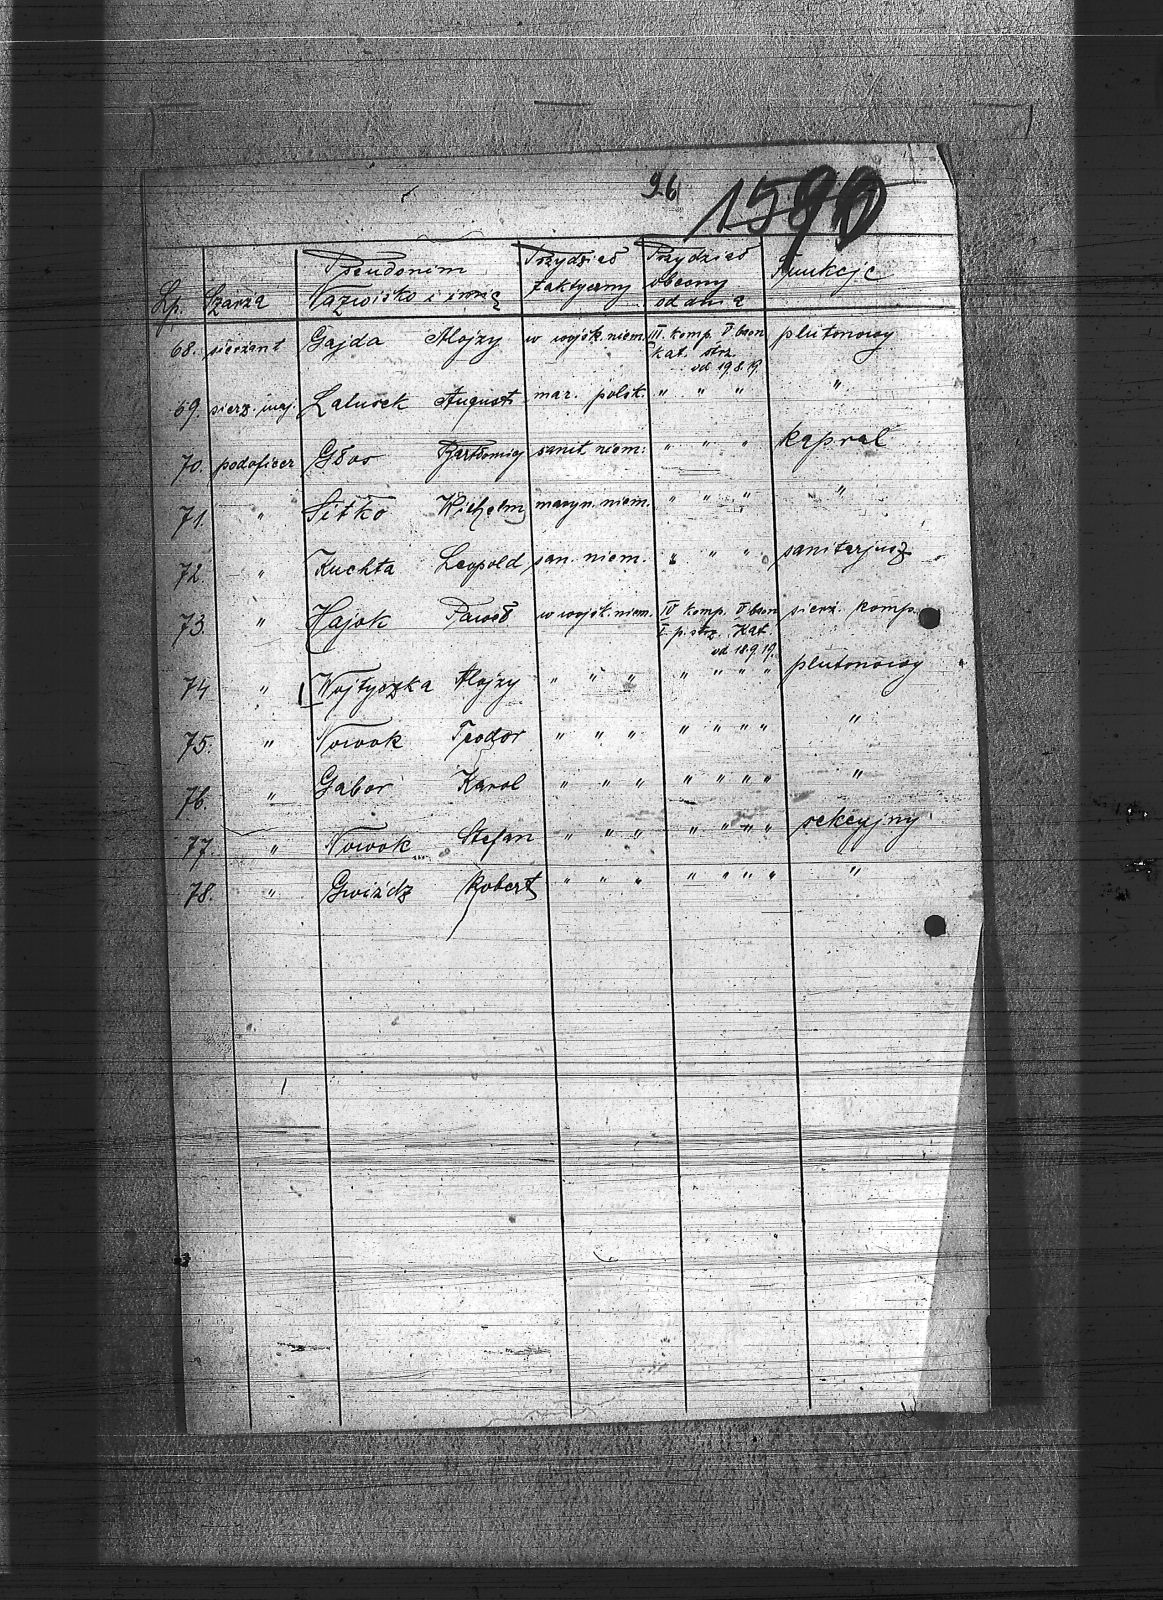 96
Lp. Szarża Pseudonim Nazwisko i imię Przydział taktyczny Przydział obecny od dnia Funkcje
68. sierżant Gajda Alojzy w wojsk. niem. III. komp. V baon plutonowy
kat. strz.
od 19.8.19.
69. sierż. maj. August mar. polsk. " " " "
70. podoficer Głos Bartłomiej sanit. niem. " " " kapral
71. " Sitko Wilhelm maryn. niem. " " " "
72. " Kuchta Leopold san. niem. " " " sanitarjusz
73. " Hajok Paweł w wojsk. niem. IV komp. V baon sierż. komp.
I p. strz. Kat.
od 18.9.19.
74 " Wojtyczka Alojzy " " " " " " " plutonowy
75. " Nowok Teodor " " " " " " " "
76. " Gabor Karol " " " " " " " "
77. " Nowok Stefan " " " " " " " sekcyjny
78. " Gwiżdż Robert " " " " " " " "